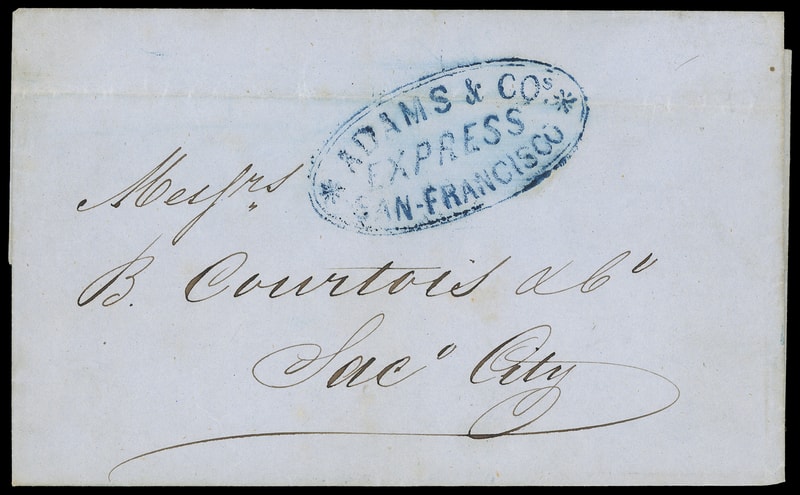 * ADAMS & COs *
EXPRESS
SAN-FRANCISCO
Messrs
B. Courtois & Co
Saco City